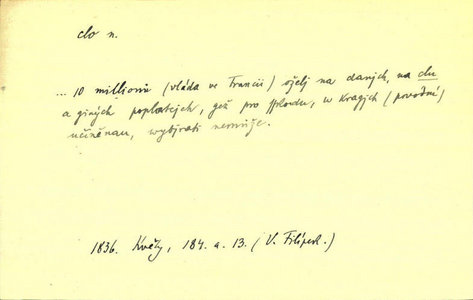 clo n.
... 10 millionů (vláda ve Francii) zželj na daních, na clu
a giných poplatcjch, gež pro sskodu, w kragjch (powodní)
učiněnau, wybjrati nemůže.
1836. Květy, 184. a. 13. (V. Filípek.)